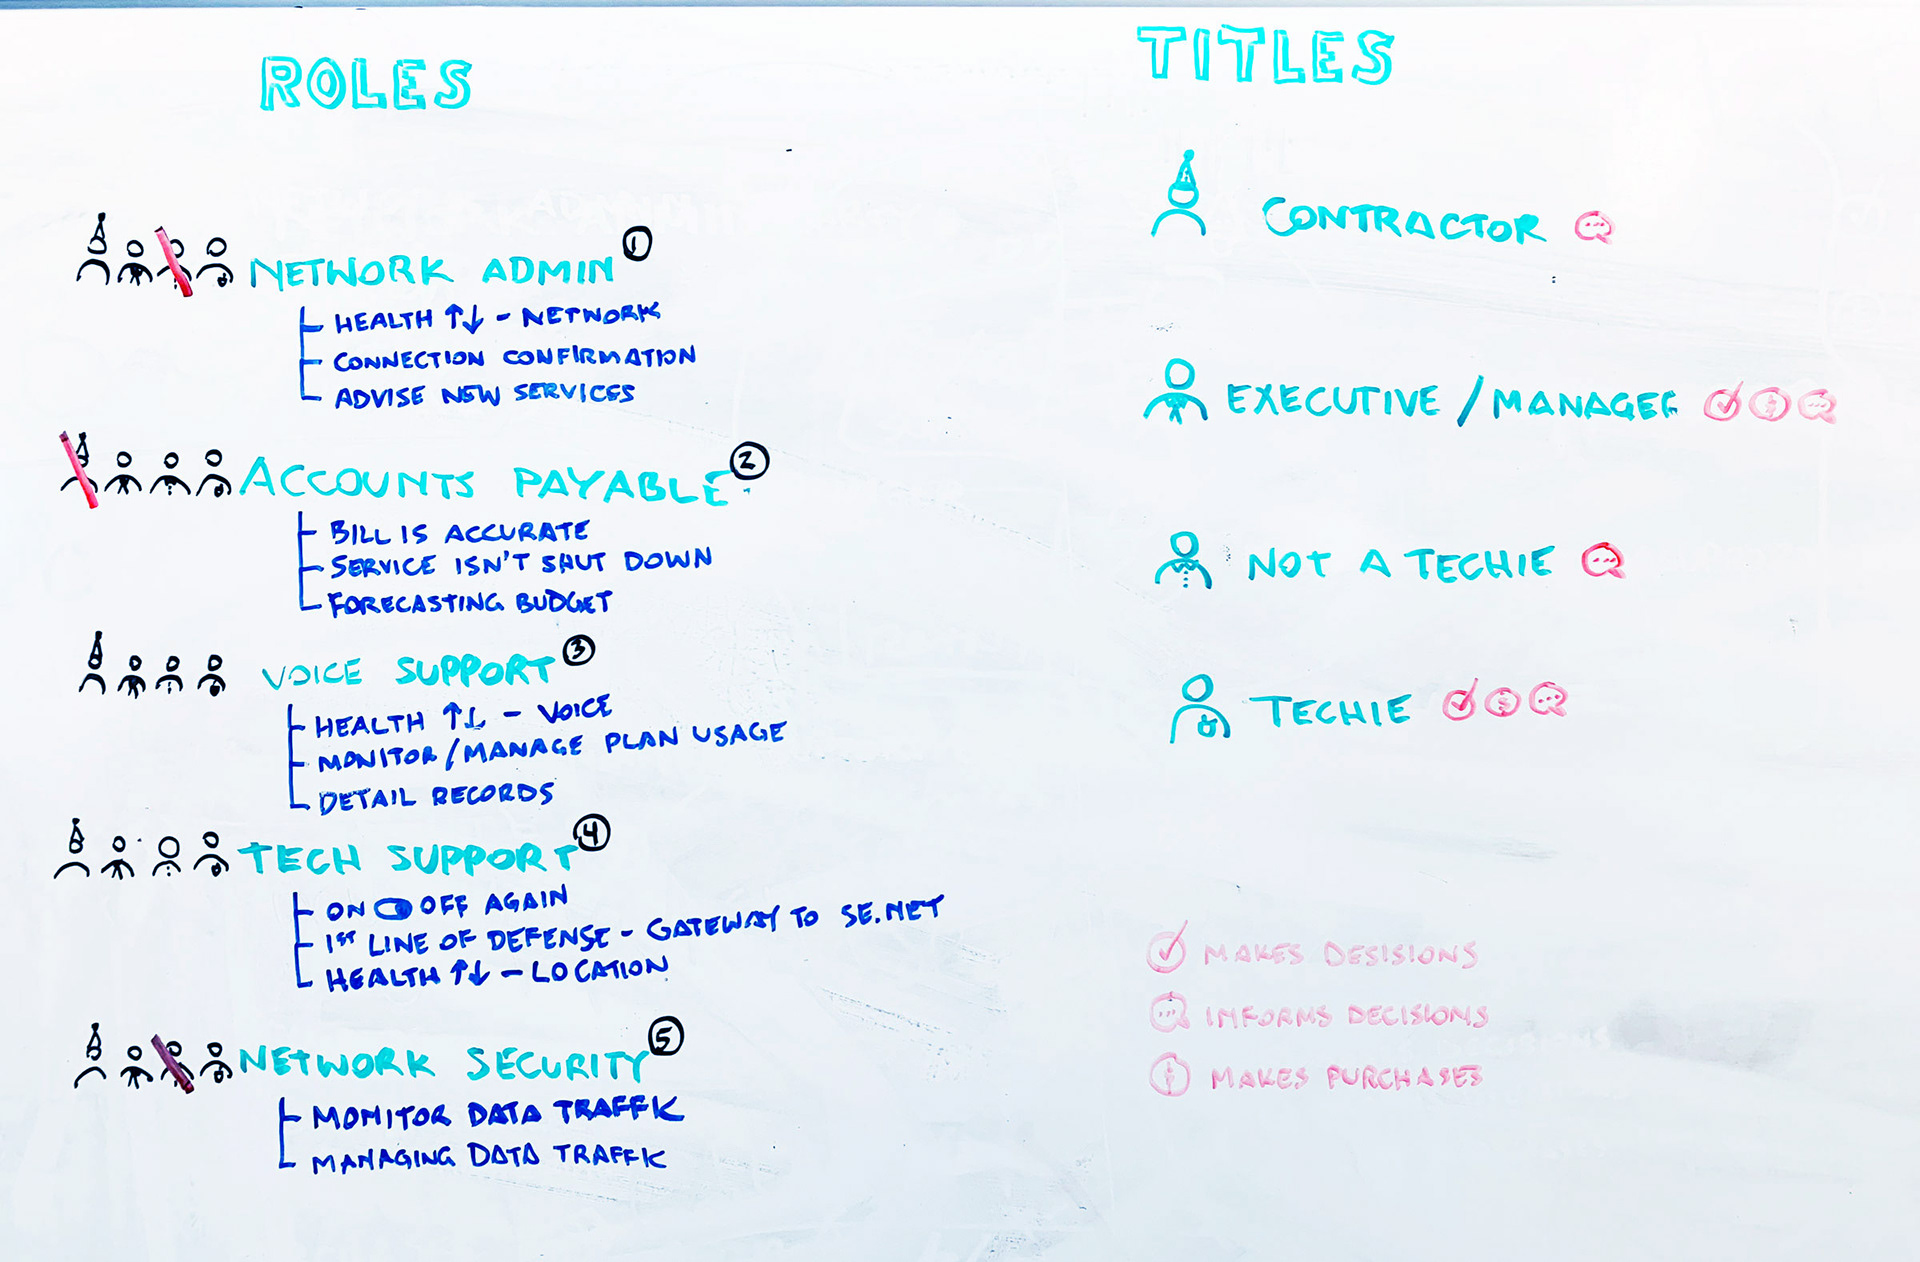 ROLES
NETWORK ADMIN 1
HEALTH ↑↓ - NETWORK
CONNECTION CONFIRMATION
ADVISE NEW SERVICES
ACCOUNTS PAYABLE 2
BILL IS ACCURATE
SERVICE ISN'T SHUT DOWN
FORECASTING BUDGET
VOICE SUPPORT 3
HEALTH ↑↓ - VOICE
MONITOR/MANAGE PLAN USAGE
DETAIL RECORDS
TECH SUPPORT 4
ON OFF AGAIN
1ST LINE OF DEFENSE - GATEWAY TO SE.NET
HEALTH ↑↓ - LOCATION
NETWORK SECURITY 5
MONITOR DATA TRAFFIC
MANAGING DATA TRAFFIC
TITLES
CONTRACTOR
EXECUTIVE / MANAGER
NOT A TECHIE
TECHIE
MAKES DESISIONS
INFORMS DECISIONS
$ MAKES PURCHASES